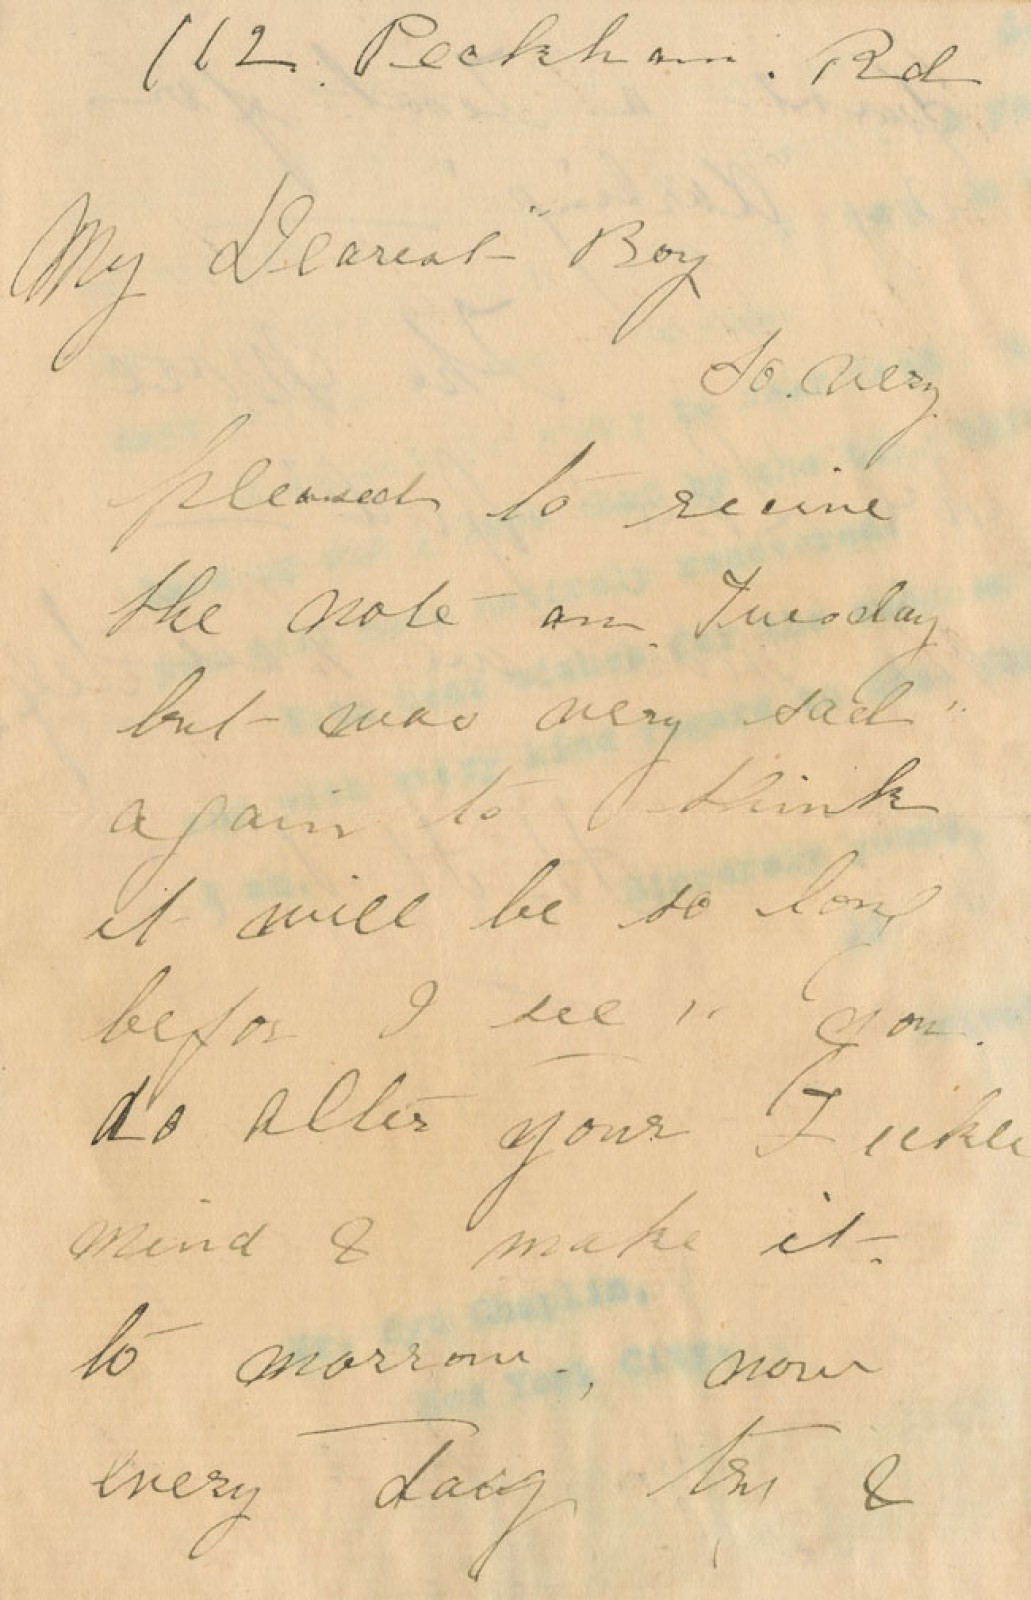 112. Peckham. Rd
My Dearest "Boy
So. very
pleased to recive
the note on. Tuesday
but was very sad"
again to think
it will be so long
befor I see " you.
do alter your Fickle
mind & make it.
to morrow., now
every day try &